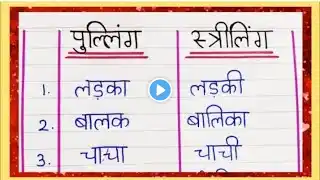 पुल्लिंग स्त्रीलिंग
1. लड़का लड़की
2. बालक बालिका
3. चाचा चाची